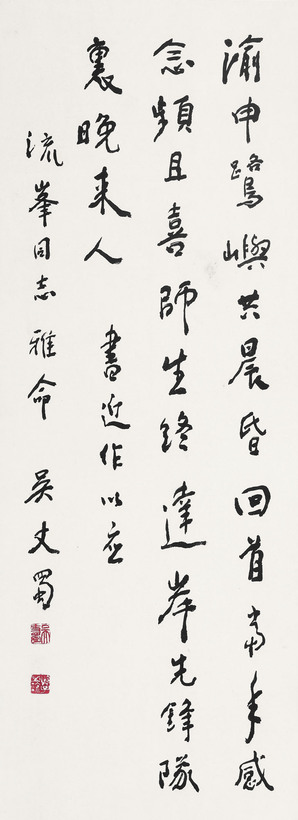 渝申鹭屿共晨昏回首当年感
念频且喜師生終達岸先鋒隊
裏晚来人　書近作以应
流峯同志雅命　吴丈蜀